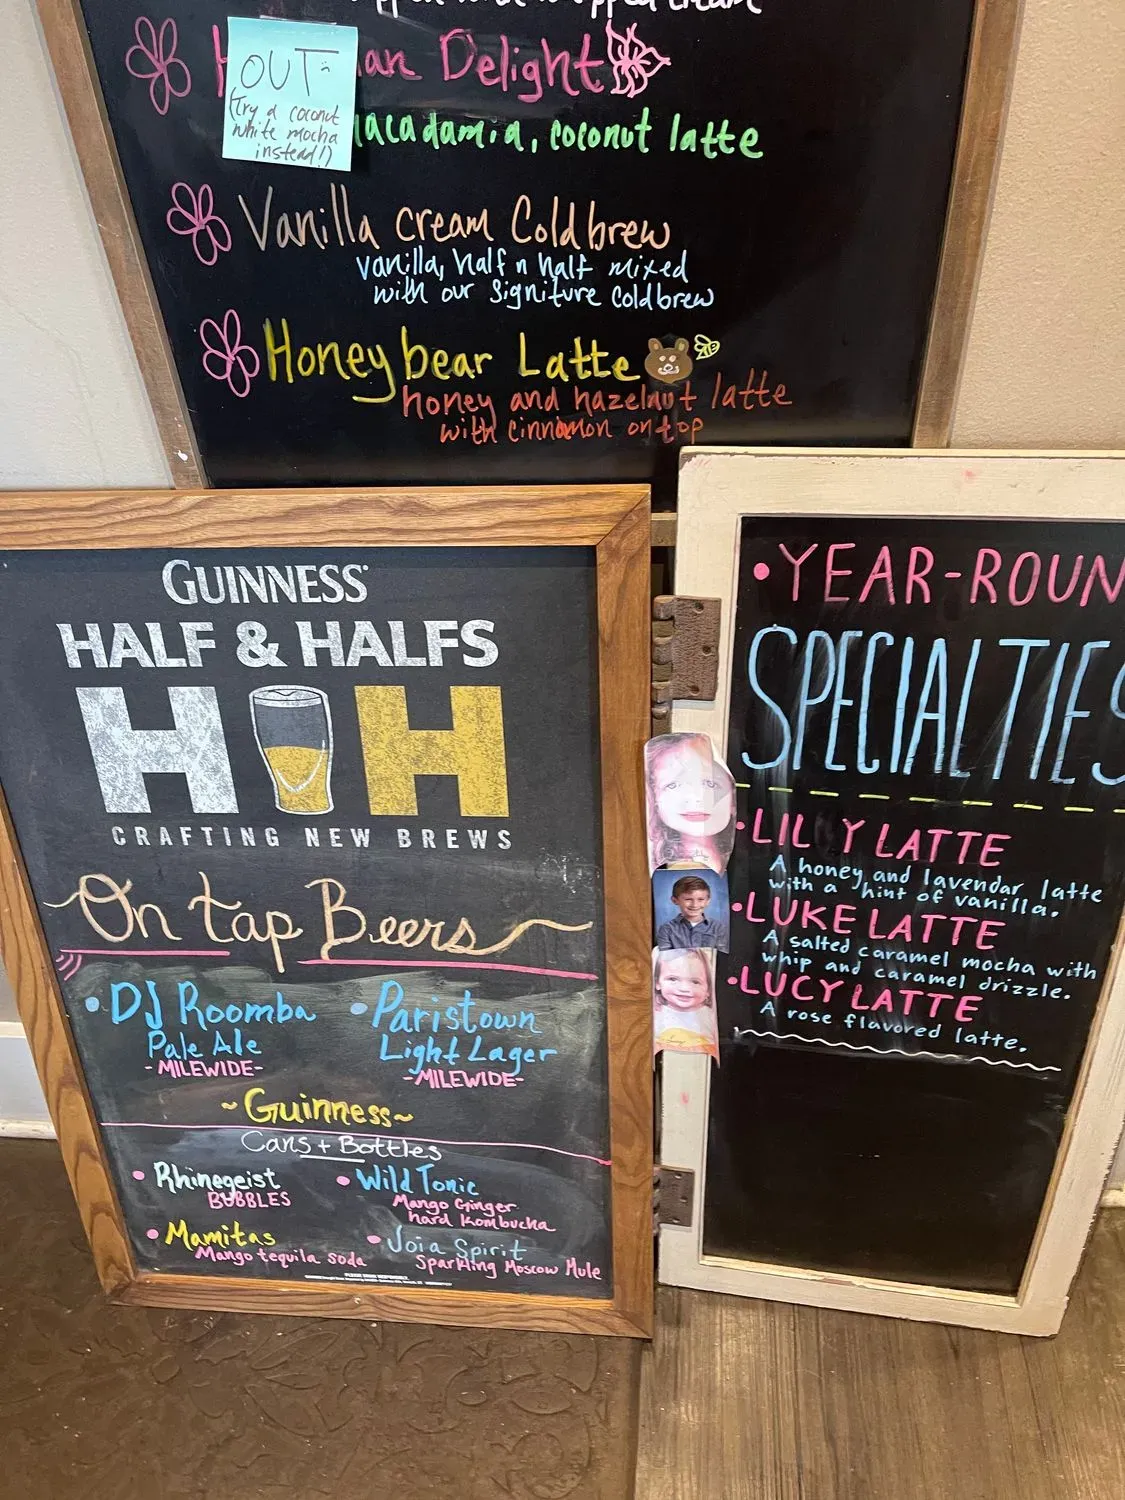 whipped cream
an Delight
OUT
(try a coconut
white mocha
instead!)
acadamia, coconut latte
Vanilla cream Coldbrew
vanilla, half n half mixed
with our Signiture coldbrew
Honeybear Latte
honey and hazelnut latte
with cinnamon on top
GUINNESS
HALF & HALFS
H H
CRAFTING NEW BREWS
On tap Beers
• DJ Roomba
Pale Ale
- MILEWIDE -
• Paristown
Light Lager
- MILEWIDE -
~ Guinness ~
Cans + Bottles
• Rhinegeist
BUBBLES
• Wild Tonic
Mango Ginger
hard kombucha
• Mamitas
Mango tequila soda
• Joia Spirit
Sparkling Moscow Mule
• YEAR-ROUN
SPECIALTIES
• LILY LATTE
A honey and lavendar latte
with a hint of vanilla.
• LUKE LATTE
A salted caramel mocha with
whip and caramel drizzle.
• LUCY LATTE
A rose flavored latte.